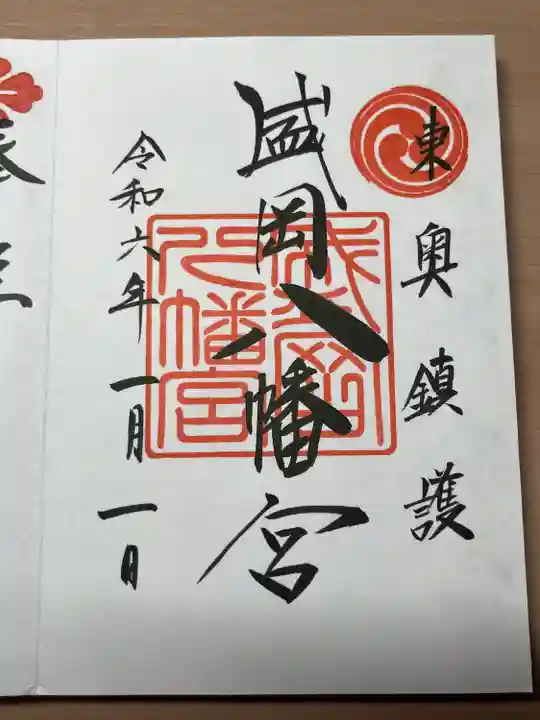 東奥鎮護
盛岡八幡宮
令和六年一月一日
盛岡
八幡宮